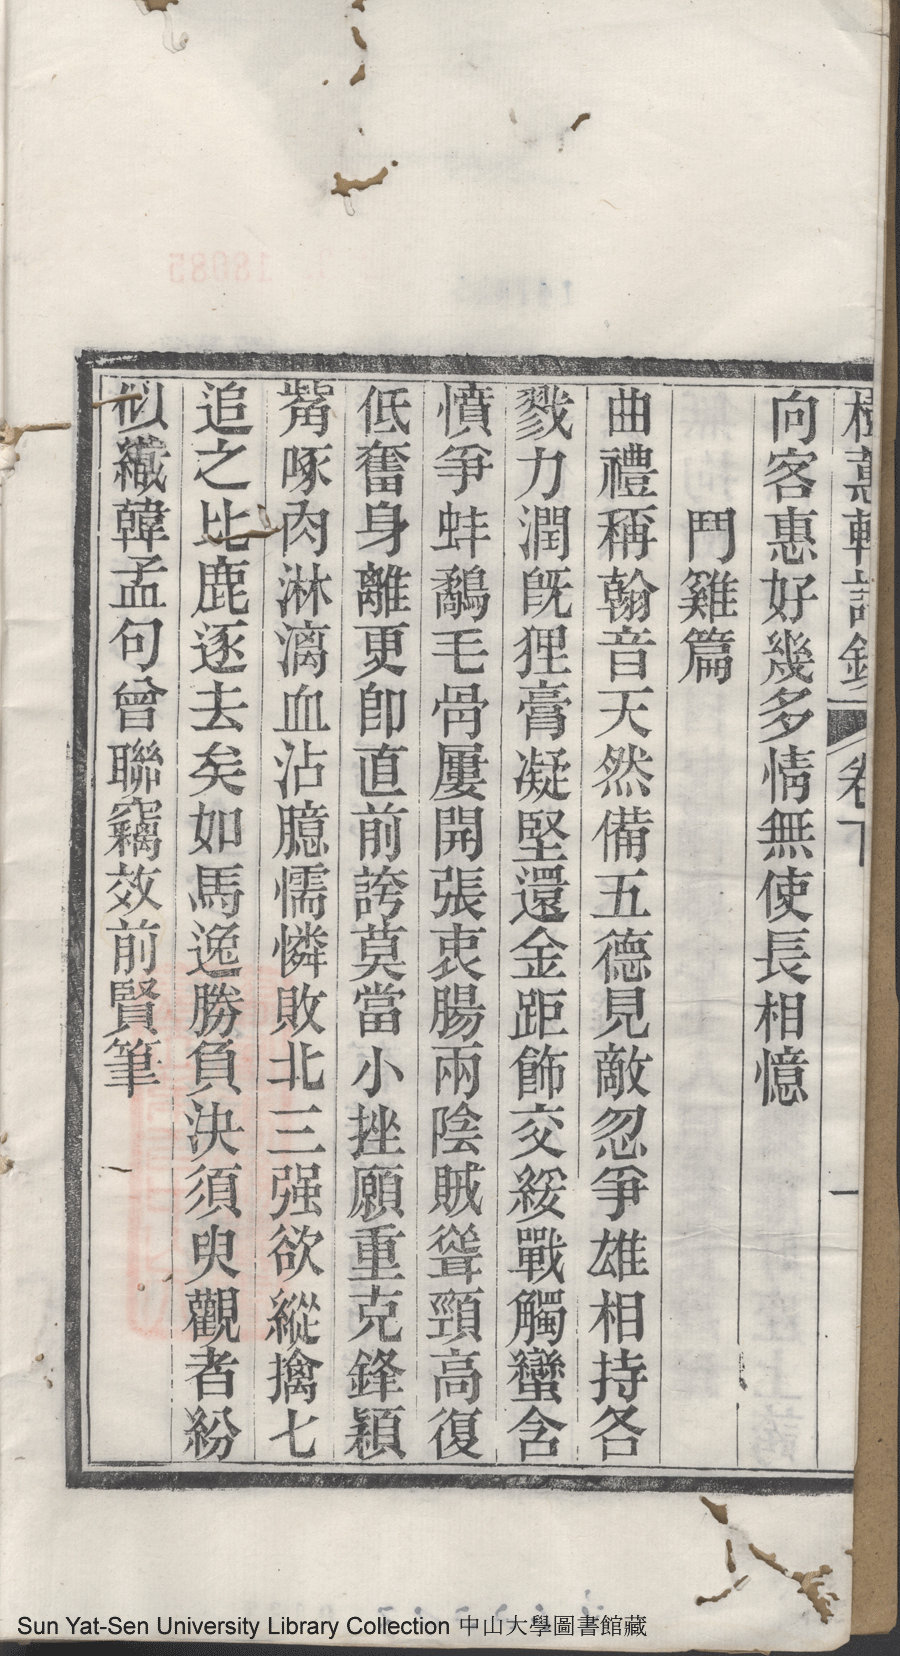 樹蕙軒詩鈔 卷下 一
向客惠好幾多情無使長相憶
鬥雞篇
曲禮稱翰音天然備五德見敵忽爭雄相持各
戮力潤旣狸膏凝堅還金距飾交綏戰觸蠻含
憤爭蚌鷸毛骨屢開張衷腸兩陰賊聳頸高復
低奮身離更卽直前誇莫當小挫願重克鋒穎
觜啄肉淋漓血沾臆懦憐敗北三强欲縱擒七
追之比鹿逐去矣如馬逸勝負決須臾觀者紛
似織韓孟句曾聯竊效前賢筆
Sun Yat-Sen University Library Collection 中山大學圖書館藏